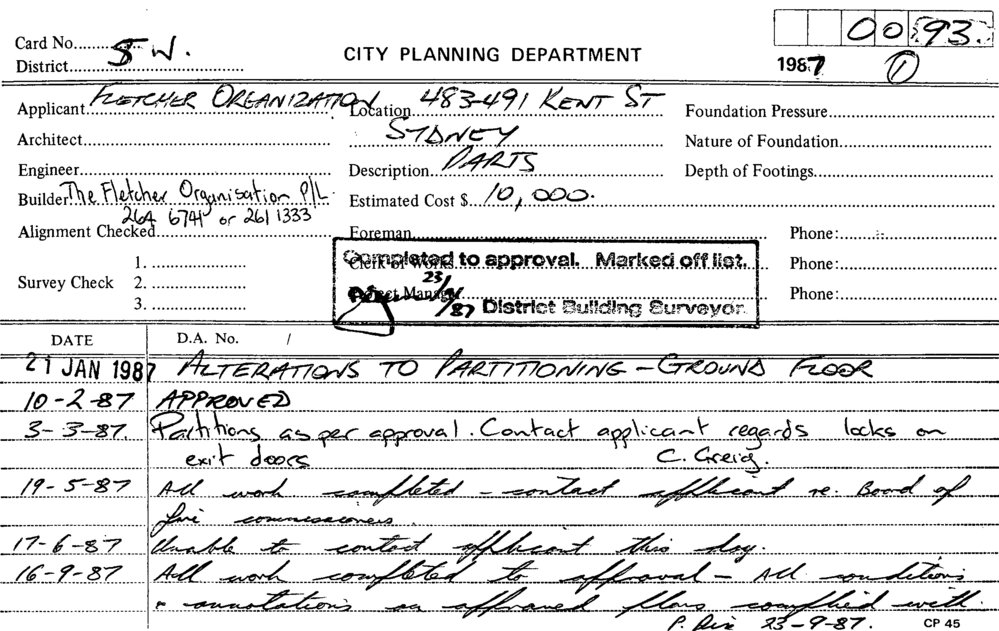 0093.
Card No.
5 W.
District
CITY PLANNING DEPARTMENT
1987 1
Applicant FLETCHER ORGANIZATION Location 483-491 KENT ST Foundation Pressure
Architect SYDNEY Nature of Foundation
Engineer Description PARTS Depth of Footings
Builder The Fletcher Organisation P/L Estimated Cost $ 10,000.
264 6741 or 261 1333
Alignment Checked Foreman Phone:
Completed to approval. Marked off list.
Clerk of Works Phone:
Survey Check 1.
2.
3.
Project Manager Phone:
23/9/87 District Building Surveyor.
DATE D.A. No. /
21 JAN 1987 ALTERATIONS TO PARTITIONING - GROUND FLOOR
10-2-87 APPROVED
3-3-87. Partitions as per approval. Contact applicant regards locks on
exit doors C. Greig.
19-5-87 All work completed - contact applicant re. Board of
fire commissioners.
17-6-87 Unable to contact applicant this day.
16-9-87 All work completed to approval - All conditions
& annotations on approved plans complied with.
P. 23-9-87. CP 45